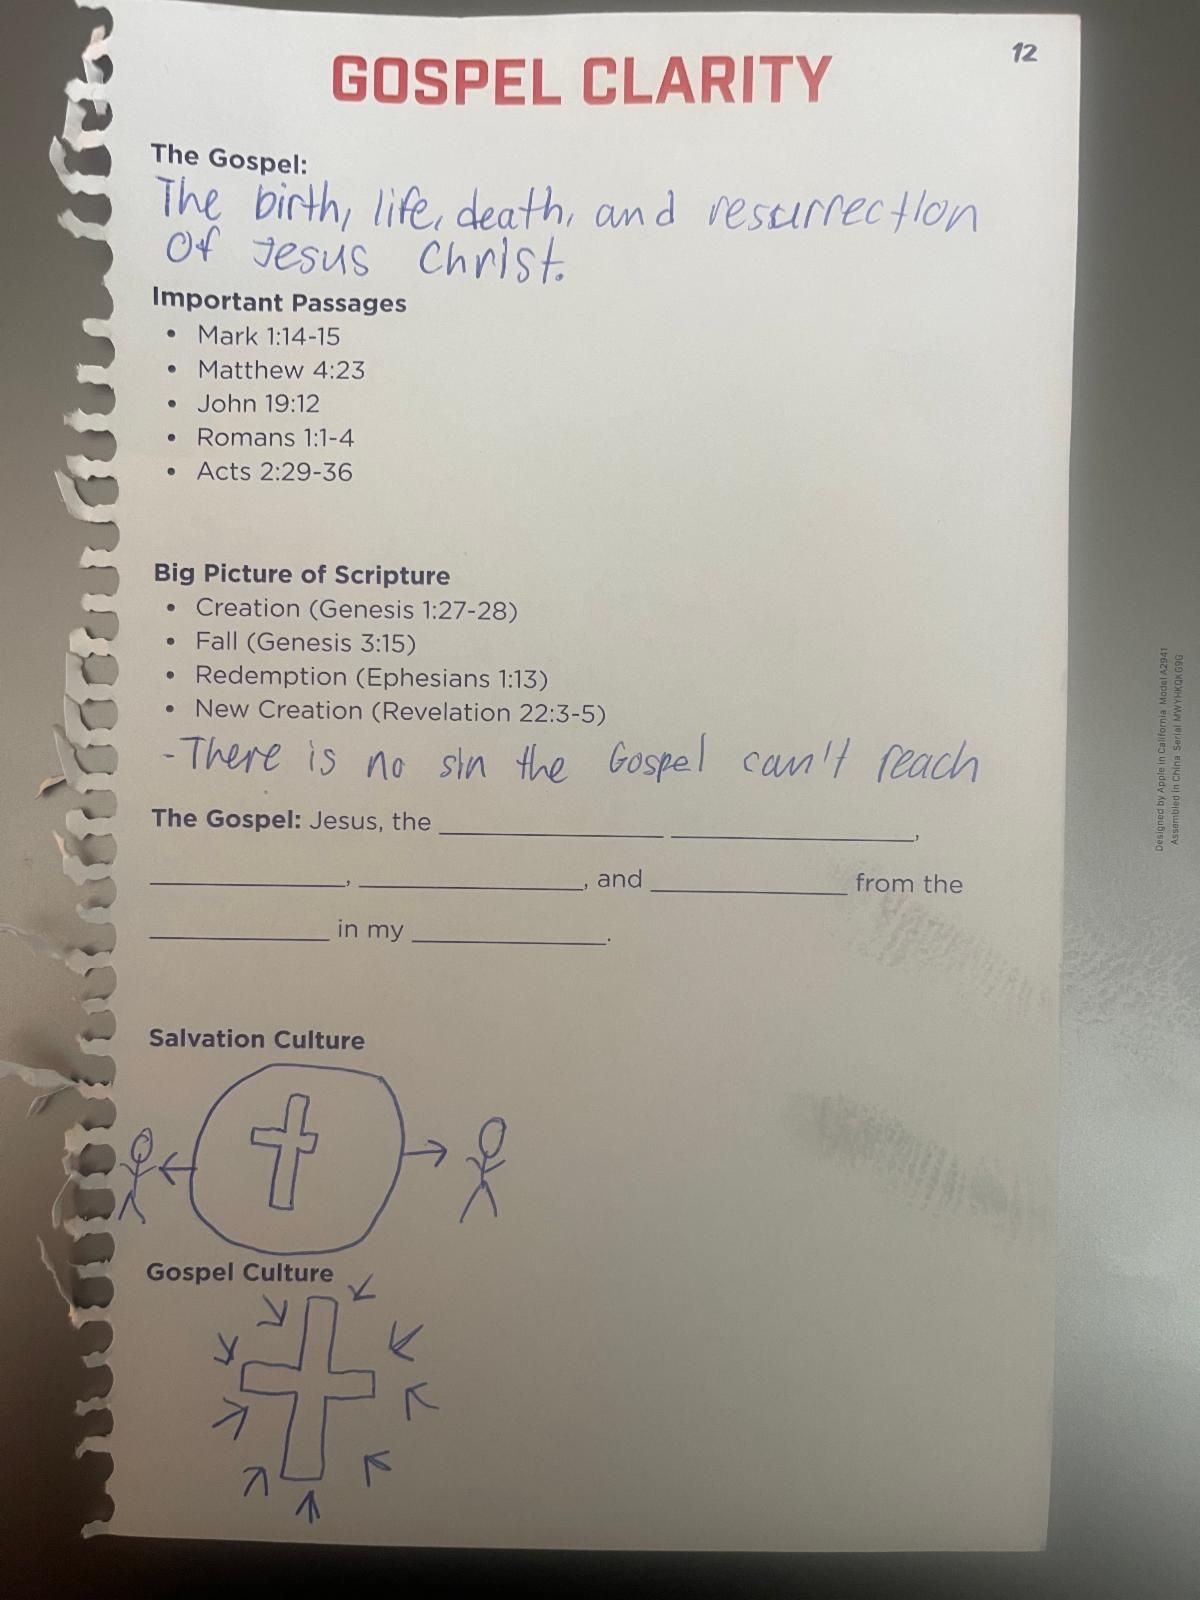 12
GOSPEL CLARITY
The Gospel:
The birth, life, death, and resurrection
Of Jesus Christ.
Important Passages
• Mark 1:14-15
• Matthew 4:23
• John 19:12
• Romans 1:1-4
• Acts 2:29-36
Big Picture of Scripture
• Creation (Genesis 1:27-28)
• Fall (Genesis 3:15)
• Redemption (Ephesians 1:13)
• New Creation (Revelation 22:3-5)
- There is no sin the Gospel can't reach
The Gospel: Jesus, the ____________ ____________,
____________, ____________, and ____________ from the
____________ in my ____________.
Salvation Culture
Gospel Culture
Designed by Apple in California Model A2941
Assembled in China Serial MWYHKQKG9G